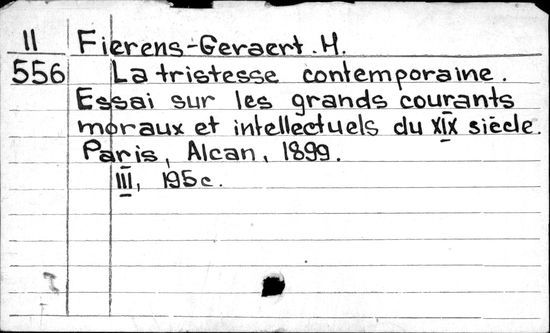 II Fierens-Geraert. H.
556 La tristesse contemporaine.
Essai sur les grands courants
moraux et intellectuels du XIX siècle.
Paris, Alcan, 1899.
III, 195c.